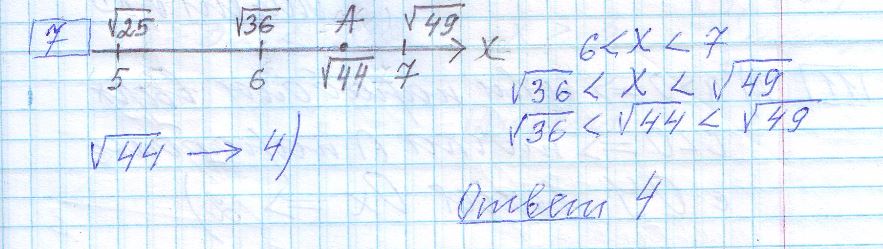 7
√25 √36 A √49
5 6 √44 7 X
6 < X < 7
√36 < X < √49
√36 < √44 < √49
√44 → 4)
Ответ 4